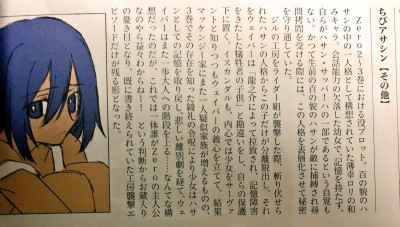 ちびアサシン【その他】
Zero2~3巻における没プロット。百の貌のハ
サンの中の一人格として構想されていた薄幸ロリの和
みキャラ。会話能力の欠落した幼女で、記憶を持たず、
自らがハサン・サッバーハの一部であるという自覚も
ない。かつて生前の百の貌のハサンが敵に捕縛され尋
問拷問を受ける際には、この人格を表層化させて秘密
を守り通していた。
ジルの工房をライダー組が襲撃した際、斬り伏せら
れたハサンの人格からこの子だけが分離脱出し、それ
をウェイバーは「龍之介に拉致され、記憶障害
に陥った犠牲者の子供」と勘違いして、自らの保護
下に置く。イスカンダルも、内心では少女をサーヴァ
ントと知りつつもウェイバーの義心を立てて、結果
マッケンジー家にまた一人疑似家族が増えるものの、
3巻でその存在を知った綺礼の令呪により少女はハサ
ンとしての記憶を取り戻し、悲しい離別劇を経て、ウェ
イバーはまた一歩大人への階段を上る……なんて構
想だったのだが、これでは一体誰がZeroの主人公
なのやら益々わからん、という判断からお蔵入り
の憂き目となり、既に書き終えられていた工房襲撃エ
ピソードだけが残る形となった。